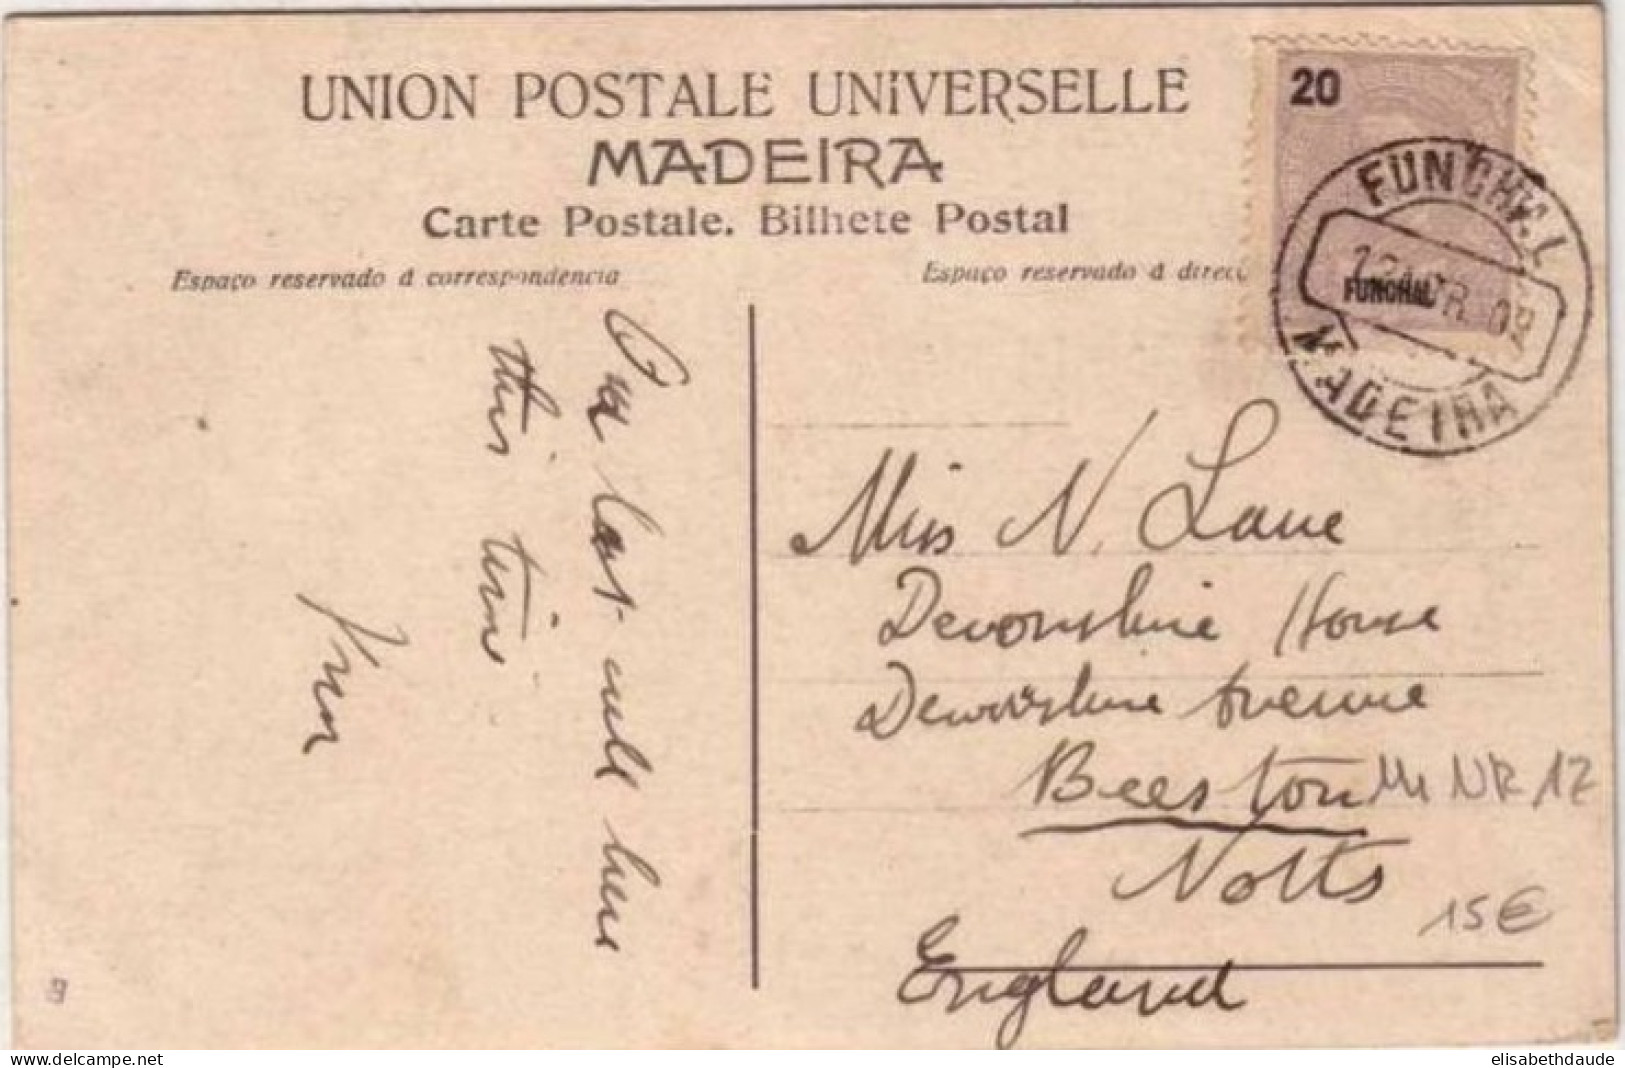 UNION POSTALE UNIVERSELLE
MADEIRA
Carte Postale. Bilhete Postal
Espaço reservado á correspondencia
Espaço reservado á direcc
20
FUNCHAL
FUNCHAL
MADEIRA
Our last call here
this time
Miss N. Lane
Devonshire House
Devonshire Avenue
Beeston
Mi NR 12
Notts
15€
England
elisabethdaude